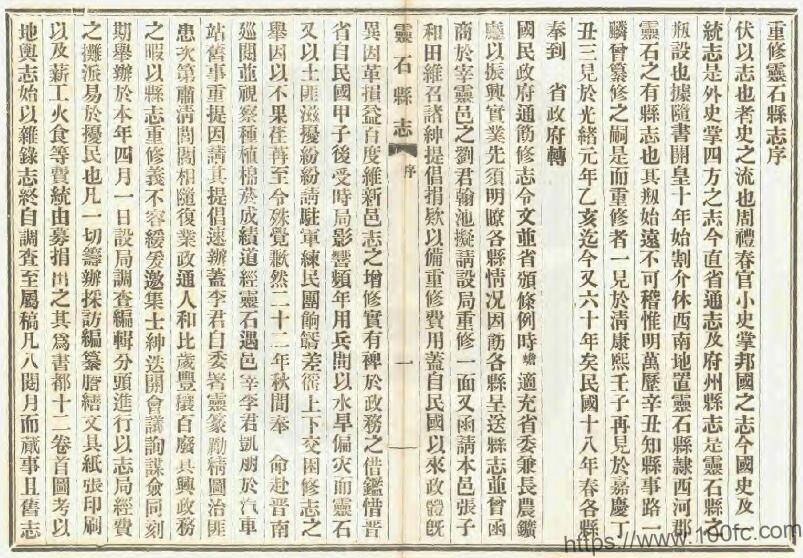 重修靈石縣志序
伏以志也者史之流也周禮春官小史掌邦國之志今國史及一
統志是外史掌四方之志今直省通志及府州縣志是靈石縣之
瓶設也據隨書開皇十年始割介休西南地置靈石縣隷西河郡
靈石之有縣志也其剏始遠不可稽惟明萬曆辛丑知縣事路一
麟曾纂修之嗣是而重修者一見於清康熙壬子再見於嘉慶丁
丑三見於光緒元年乙亥迄今又六十年矣民國十八年春各縣
奉到 省政府轉
國民政府通飭修志令文並省頒條例時 蟾 適充省委兼長農鑛
廳以振興實業先須明瞭各縣情况因飭各縣呈送縣志並曾函
商於宰靈邑之劉君翰池擬請設局重修一面又函請本邑張子
和田維召諸紳提倡捐欵以備重修費用蓋自民國以來政體既
靈石縣志 序 一
異因革損益百度維新邑志之增修實有裨於政務之借鑑惜晋
省自民國甲子後受時局影響頻年用兵間以水旱偏灾而靈石
又以土匪滋擾紛紛請駐軍練民團餉糈差徭上下交困修志之
舉因以不果荏苒至今殊覺歉然二十二年秋間奉 命赴晋南
巡閱並視察種植棉菸成績道經靈石遇邑宰李君凱朋於汽車
站舊事重提因請其提倡速辦蓋李君自委署靈篆勵精圖治匪
患次第肅清閭閻相隨復業政通人和比歲豐穰百廢具興政務
之暇以縣志重修義不容緩爰邀集士紳迭開會議詢謀僉同刻
期舉辦於本年四月一日設局調查編輯分頭進行以志局經費
之攤派易於擾民也凡一切籌辦採訪編纂謄繕文具紙張印刷
以及薪工火食等費統由募捐出之其爲書都十二卷首圖考以
地輿志始以雜錄志終自調查至屬稿凡八閱月而蕆事且舊志
https://www.100fc.com